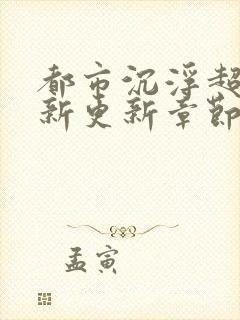 都市沉浮超
新更新章節
孟寅